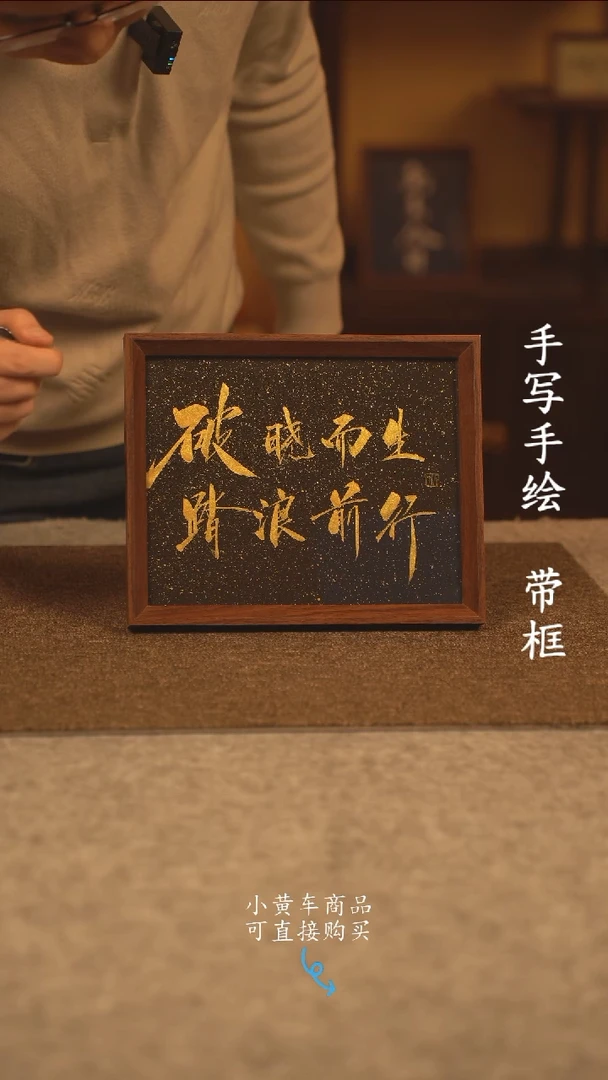 破晓而生
踏浪前行
手写手绘 带框
小黄车商品
可直接购买